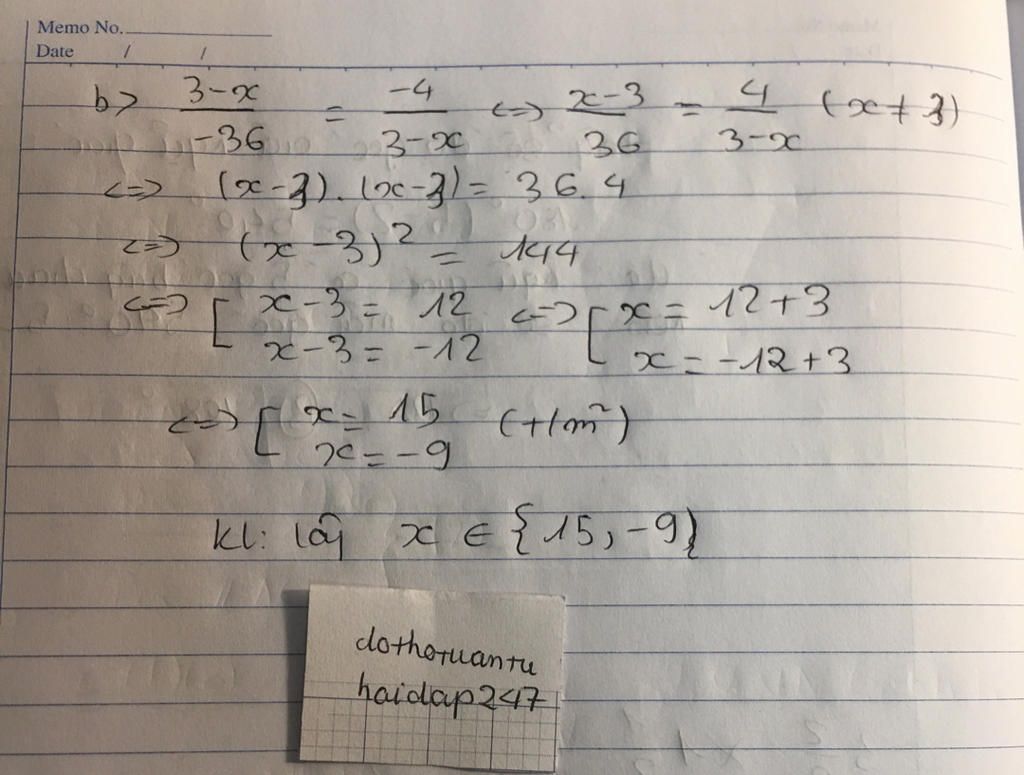 Memo No.
Date / /
b> 3-x/-36 = -4/3-x <=> x-3/36 = 4/3-x (x≠3)
<=> (x-3).(x-3) = 36.4
<=> (x-3)² = 144
<=> [ x-3 = 12 <=> [ x = 12+3
x-3 = -12 x = -12+3
<=> [ x = 15 (t/m²)
x = -9
kl: x ∈ {15, -9}
dothotuantu
haidap247